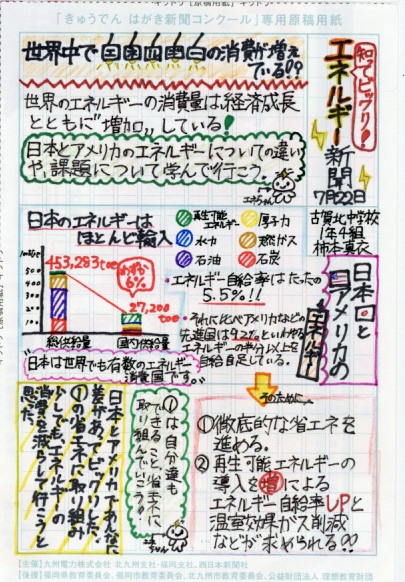 「きゅうでん はがき新聞コンクール」専用原稿用紙
知ってビックリ!
エネルギー
新聞
7月22日
古賀北中学校
1年4組
柿本真衣
世界中で
の消費が増え
ている!?
世界のエネルギーの消費量は経済成長
とともに"増加"している!
日本とアメリカのエネルギーについての違い
や、課題について学んで行こう。
エネちゃん
日本のエネルギーは
ほとんど輸入
再生可能
エネルギー
原子力
水力
天然ガス
石油
石炭
500
400
300
200
100
0
453,283 toe
わずか
6%
27,200
toe
総供給量
国内供給量
・エネルギー自給率はたったの
5.5%!!
・それに比べアメリカなどの
先進国は92%といわれ
エネルギーの半分以上を
自給自足している。
日本は世界でも有数のエネルギー
消費国です。
日本と
アメリカの
そのために、
①徹底的な省エネを
進める。
②再生可能エネルギーの
導入増による
エネルギー自給率UPと
温室効果ガス削減
などが求められる!?
①は自分達も
できること。省エネに
取り組んでいこう!
エネちゃん
日本とアメリカでこんなに
差があってビックリした。
①の省エネに取り組み
少しでも、エネルギーの
消費を減らして行こうと
思った。
【主催】九州電力株式会社 北九州支社・福岡支社、西日本新聞社
【後援】福岡県教育委員会、福岡市教育委員会、北九州市教育委員会、公益財団法人 理想教育財団